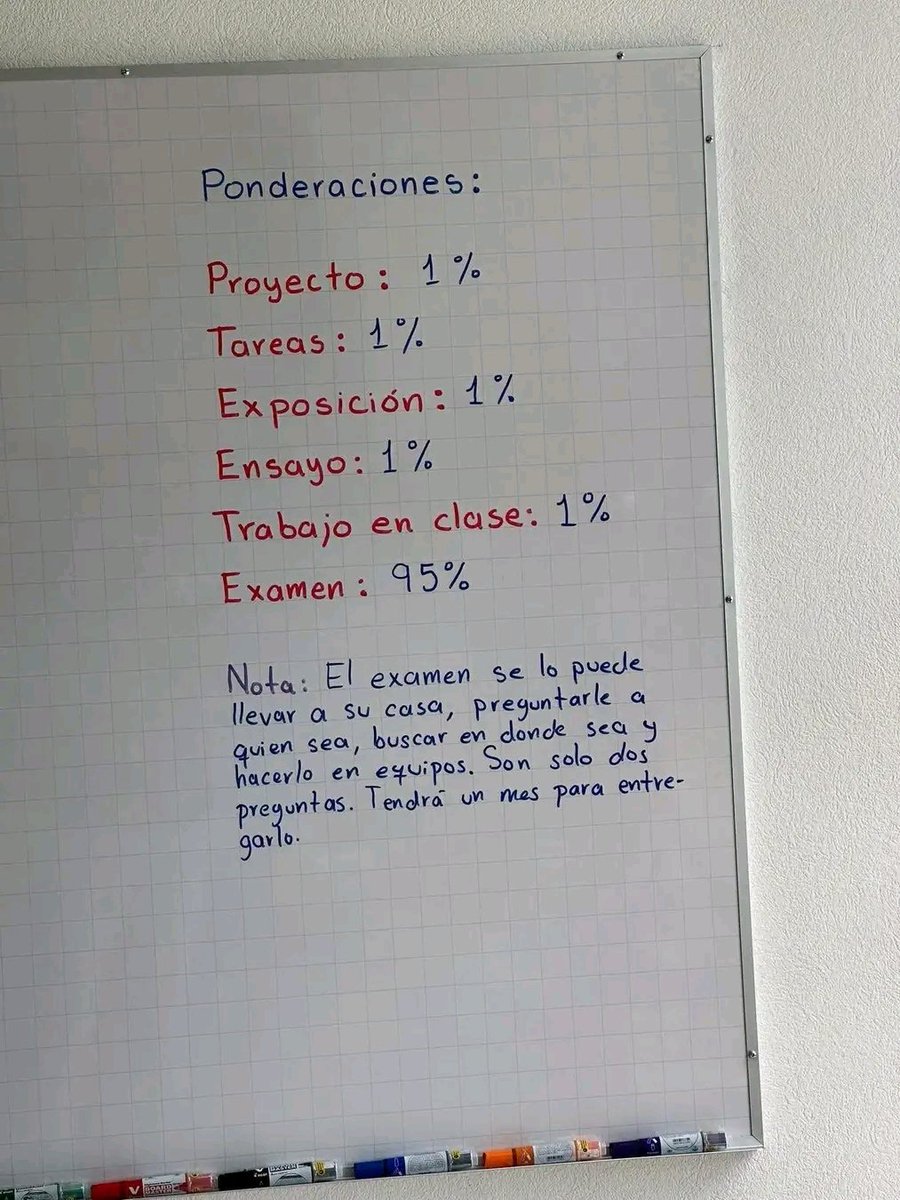 Ponderaciones:
Proyecto: 1%
Tareas: 1%
Exposición: 1%
Ensayo: 1%
Trabajo en clase: 1%
Examen: 95%
Nota: El examen se lo puede
llevar a su casa, preguntarle a
quien sea, buscar en donde sea y
hacerlo en equipos. Son solo dos
preguntas. Tendrá un mes para entre-
garlo.